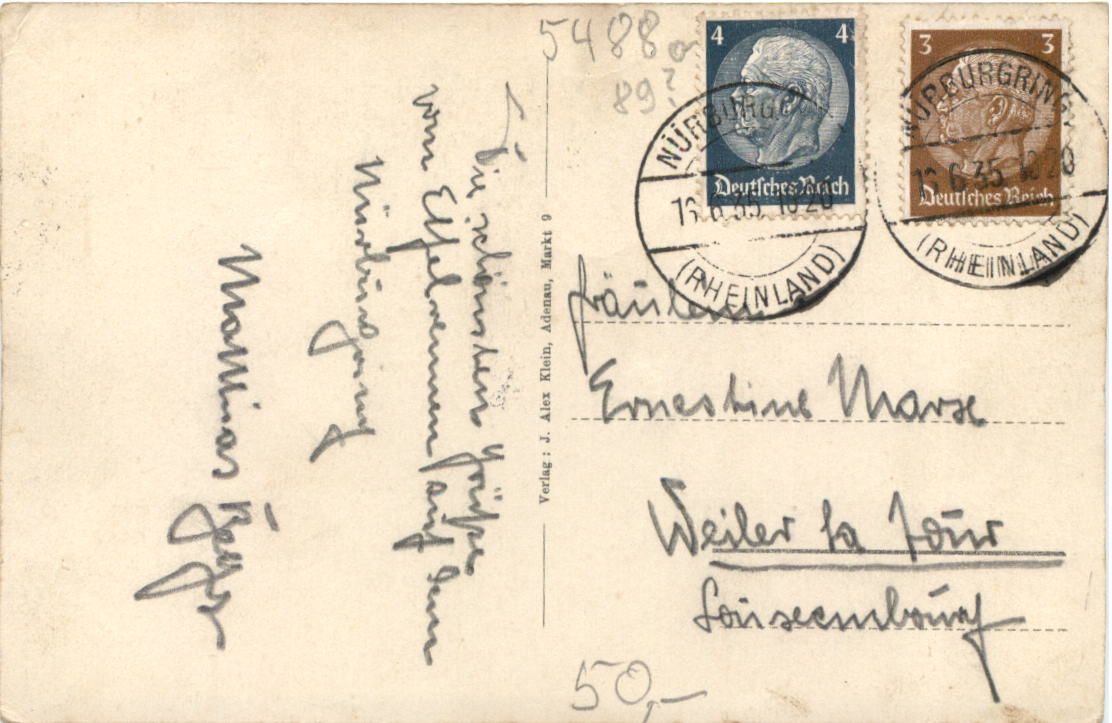 5488 a
89?
4 4
Deutsches Reich
3 3
Deutsches Reich
NÜRBURGRING
16.6.35.18-20
(RHEINLAND)
NÜRBURGRING
16.6.35.18-20
(RHEINLAND)
Die schönsten Grüße
vom Eifelrennen auf dem
Nürburgring
Mathias
Verlag: J. Alex Klein, Adenau, Markt 9
Fräulein
Ernestine
Weiler la Tour
50,-